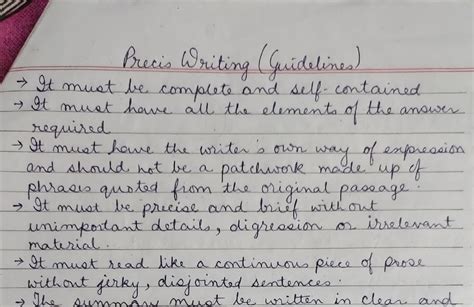 Precis Writing (Guidelines)
→ It must be complete and self-contained
→ It must have all the elements of the answer
required
→ It must have the writer's own way of expression
and should not be a patchwork made up of
phrases quoted from the original passage.
→ It must be precise and brief without
unimportant details, digression or irrelevant
material.
→ It must read like a continuous piece of prose
without jerky, disjointed sentences.
→ The summary must be written in clear and